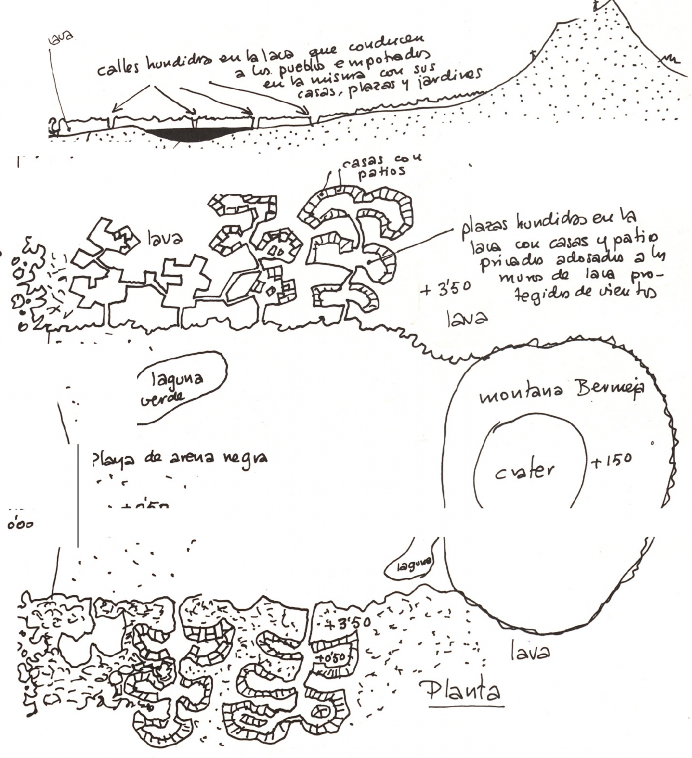 lava
calles hundidas en la lava que conducen
a los pueblo empotrados
en la misma con sus
casas, plazas y jardines
casas con
patios
lava
plazas hundidas en la
lava con casas y patio
privado adosado a los
muros de lava pro-
tegidos de vientos
+3'50
lava
laguna
verde
montana Bermeja
crater
+150
Playa de arena negra
+0'50
0'00
laguna
+3'50
+0'50
lava
Planta